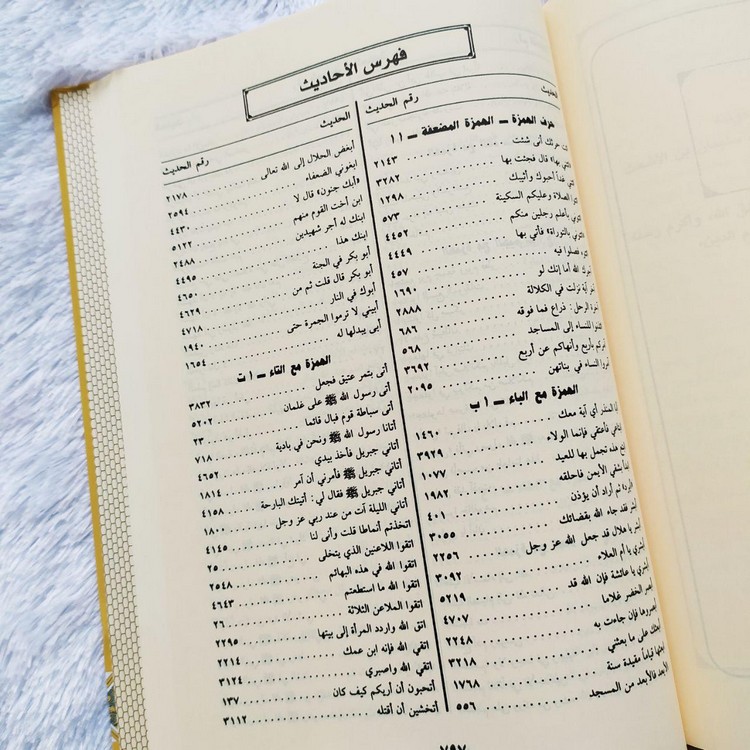 فهرس الأحاديث
الحديث رقم الحديث
حرف الهمزة ــ الهمزة المضعفة ــ ا ا
حرثك أنى شئت ٢١٤٣
بها» قال فجئت بها ٣٢٨٢
غداً أحبوك وأثيبك ١٢٩٨
الصلاة وعليكم السكينة ٥٧٣
بأعلم رجلين منكم ٤٤٥٢
بالتوراة» فأتي بها ٤٤٤٩
فصلوا فيه ٤٥٧
الله أما إنك لو ١٦٩٠
آية نزلت في الكلالة ٢٨٨٨
الرحل: ذراع فما فوقه ٦٨٦
للنساء إلى المساجد ٥٦٨
بأربع وأنهاكم عن أربع ٣٦٩٢
النساء في بناتهن ٢٠٩٥
الهمزة مع الباء ــ ا ب
المنذر أي آية معك ١٤٦٠
فأعتقي فإنما الولاء ٣٩٢٩
هذه تجمل بها للعيد ١٠٧٧
بشقي الأيمن فاحلقه ١٩٨٢
ثم أراد أن يؤذن ٤٠١
فقد جاء الله بقضائك ٣٠٥٥
يا هلال قد جعل الله عز وجل ٢٢٥٦
يا أم العلاء ٣٠٩٢
يا عائشة فإن الله قد ٥٢١٩
الخضر غلاما ٤٧٠٧
فإن جاءت به ٢٢٤٨
على ما بعثني ٣٢١٨
قياماً مقيدة سنة ١٧٦٨
الأبعد فالأبعد من المسجد ٥٥٦
الحديث رقم الحديث
أبغض الحلال إلى الله تعالى ٢١٧٨
ابغوني الضعفاء ٢٥٩٤
«أبك جنون» قال لا ٤٤٣٠
ابن أخت القوم منهم ٥١٢٢
ابنك له أجر شهيدين ٢٤٨٨
ابنك هذا ٤٤٩٥
أبو بكر في الجنة ٤٦٥٠
أبو بكر قال قلت ثم من ٤٦٢٩
أبوك في النار ٤٧١٨
أبيني لا ترموا الجمرة حتى ١٩٤٠
أبى يبدلها له ١٦٥٤
الهمزة مع التاء ــ ا ت
أتى بتمر عتيق فجعل ٣٨٣٢
أتى رسول الله ﷺ على غلمان ٥٢٠٢
أتى سباطة قوم فبال قائما ٢٣
أتانا رسول الله ﷺ ونحن في بادية ٧١٨
أتاني جبريل فأخذ بيدي ٤٦٥٢
أتاني جبريل ﷺ فأمرني أن آمر ١٨١٤
أتاني جبريل ﷺ فقال لي: أتيتك البارحة ٤١٥٨
أتاني الليلة آت من عند ربي عز وجل ١٨٠٠
اتخذتم أنماطا قلت وأنى لنا ٤١٤٥
اتقوا اللاعنين الذي يتخلى ٢٥
اتقوا الله في هذه البهائم ٢٥٤٨
اتقوا الله ما استطعتم ٤٦٤٣
اتقوا الملاعن الثلاثة ٢٦
اتق الله واردد المرأة إلى بيتها ٢٢٩٥
اتقي الله فإنه ابن عمك ٢٢١٤
اتقي الله واصبري ٣١٢٤
أتحبون أن أريكم كيف كان ١٣٧
أتخشين أن أقتله ٣١١٢
٧٩٧